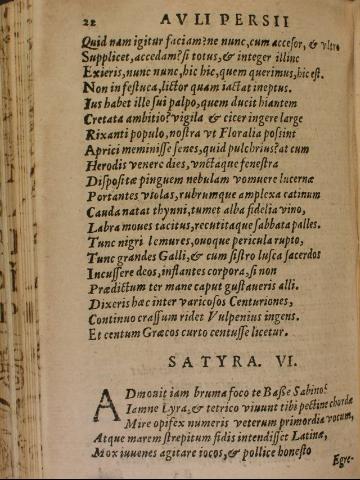 22 AVLI PERSII
Quid nam igitur faciam? ne nunc, cum accesor, & vltro
Supplicet, accedam? si totus, & integer illinc
Exieris, nunc nunc, hic hic, quem querimus, hic est.
Non in festuca, lictor quam iactat ineptus.
Ius habet ille sui palpo, quem ducit hiantem
Cretata ambitio? vigila & cicer ingere large
Rixanti populo, nostra vt Floralia possint
Aprici meminisse senes, quid pulchrius? at cum
Herodit venere dies, vnctaque fenestra
Dispositæ pinguem nebulam vomuere lucernæ
Portantes violas, rubrumque amplexa catinum
Cauda natat thynni, tumet alba fidelia vino,
Labra moues tacitus, recutitaque sabbata palles.
Tunc nigri lemures, ouoque pericula rupto,
Tunc grandes Galli, & cum sistro lusca sacerdos
Incussere deos, inflantes corpora, si non
Prædictum ter mane caput gustaueris alli.
Dixeris hæc inter varicosos Centuriones,
Continuo crassum ridet Vulpenius ingens.
Et centum Græcos curto centusse licetur.
SATYRA. VI.
ADmouit iam bruma foco te Basse Sabino?
Iamne Lyra, & tetrico viuunt tibi pectine chordæ
Mire opifex numeris veterum primordia vocum,
Atque marem strepitum fidis intendisse Latinæ,
Mox iuuenes agitare iocos, & pollice honesto
Egre-